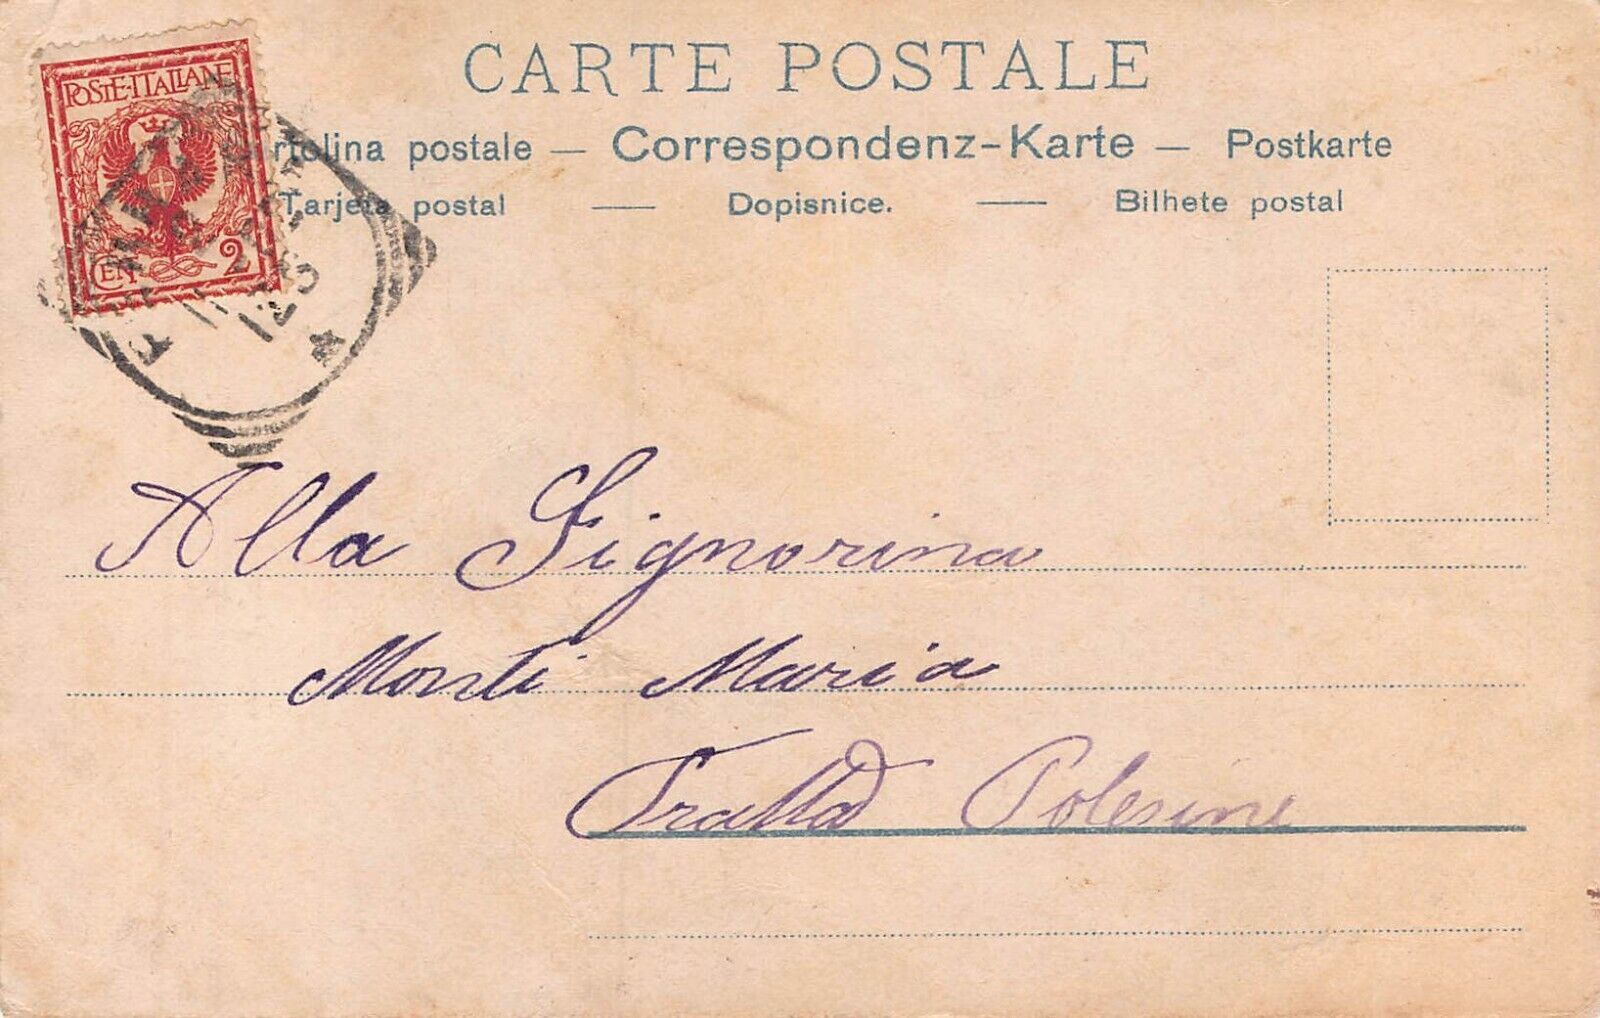 CARTE POSTALE
POSTE-ITALIANE
rtolina postale — Correspondenz-Karte — Postkarte
Tarjeta postal — Dopisnice. — Bilhete postal
CEN 2
Alla Signorina
Monti Maria
Fratta Polesine